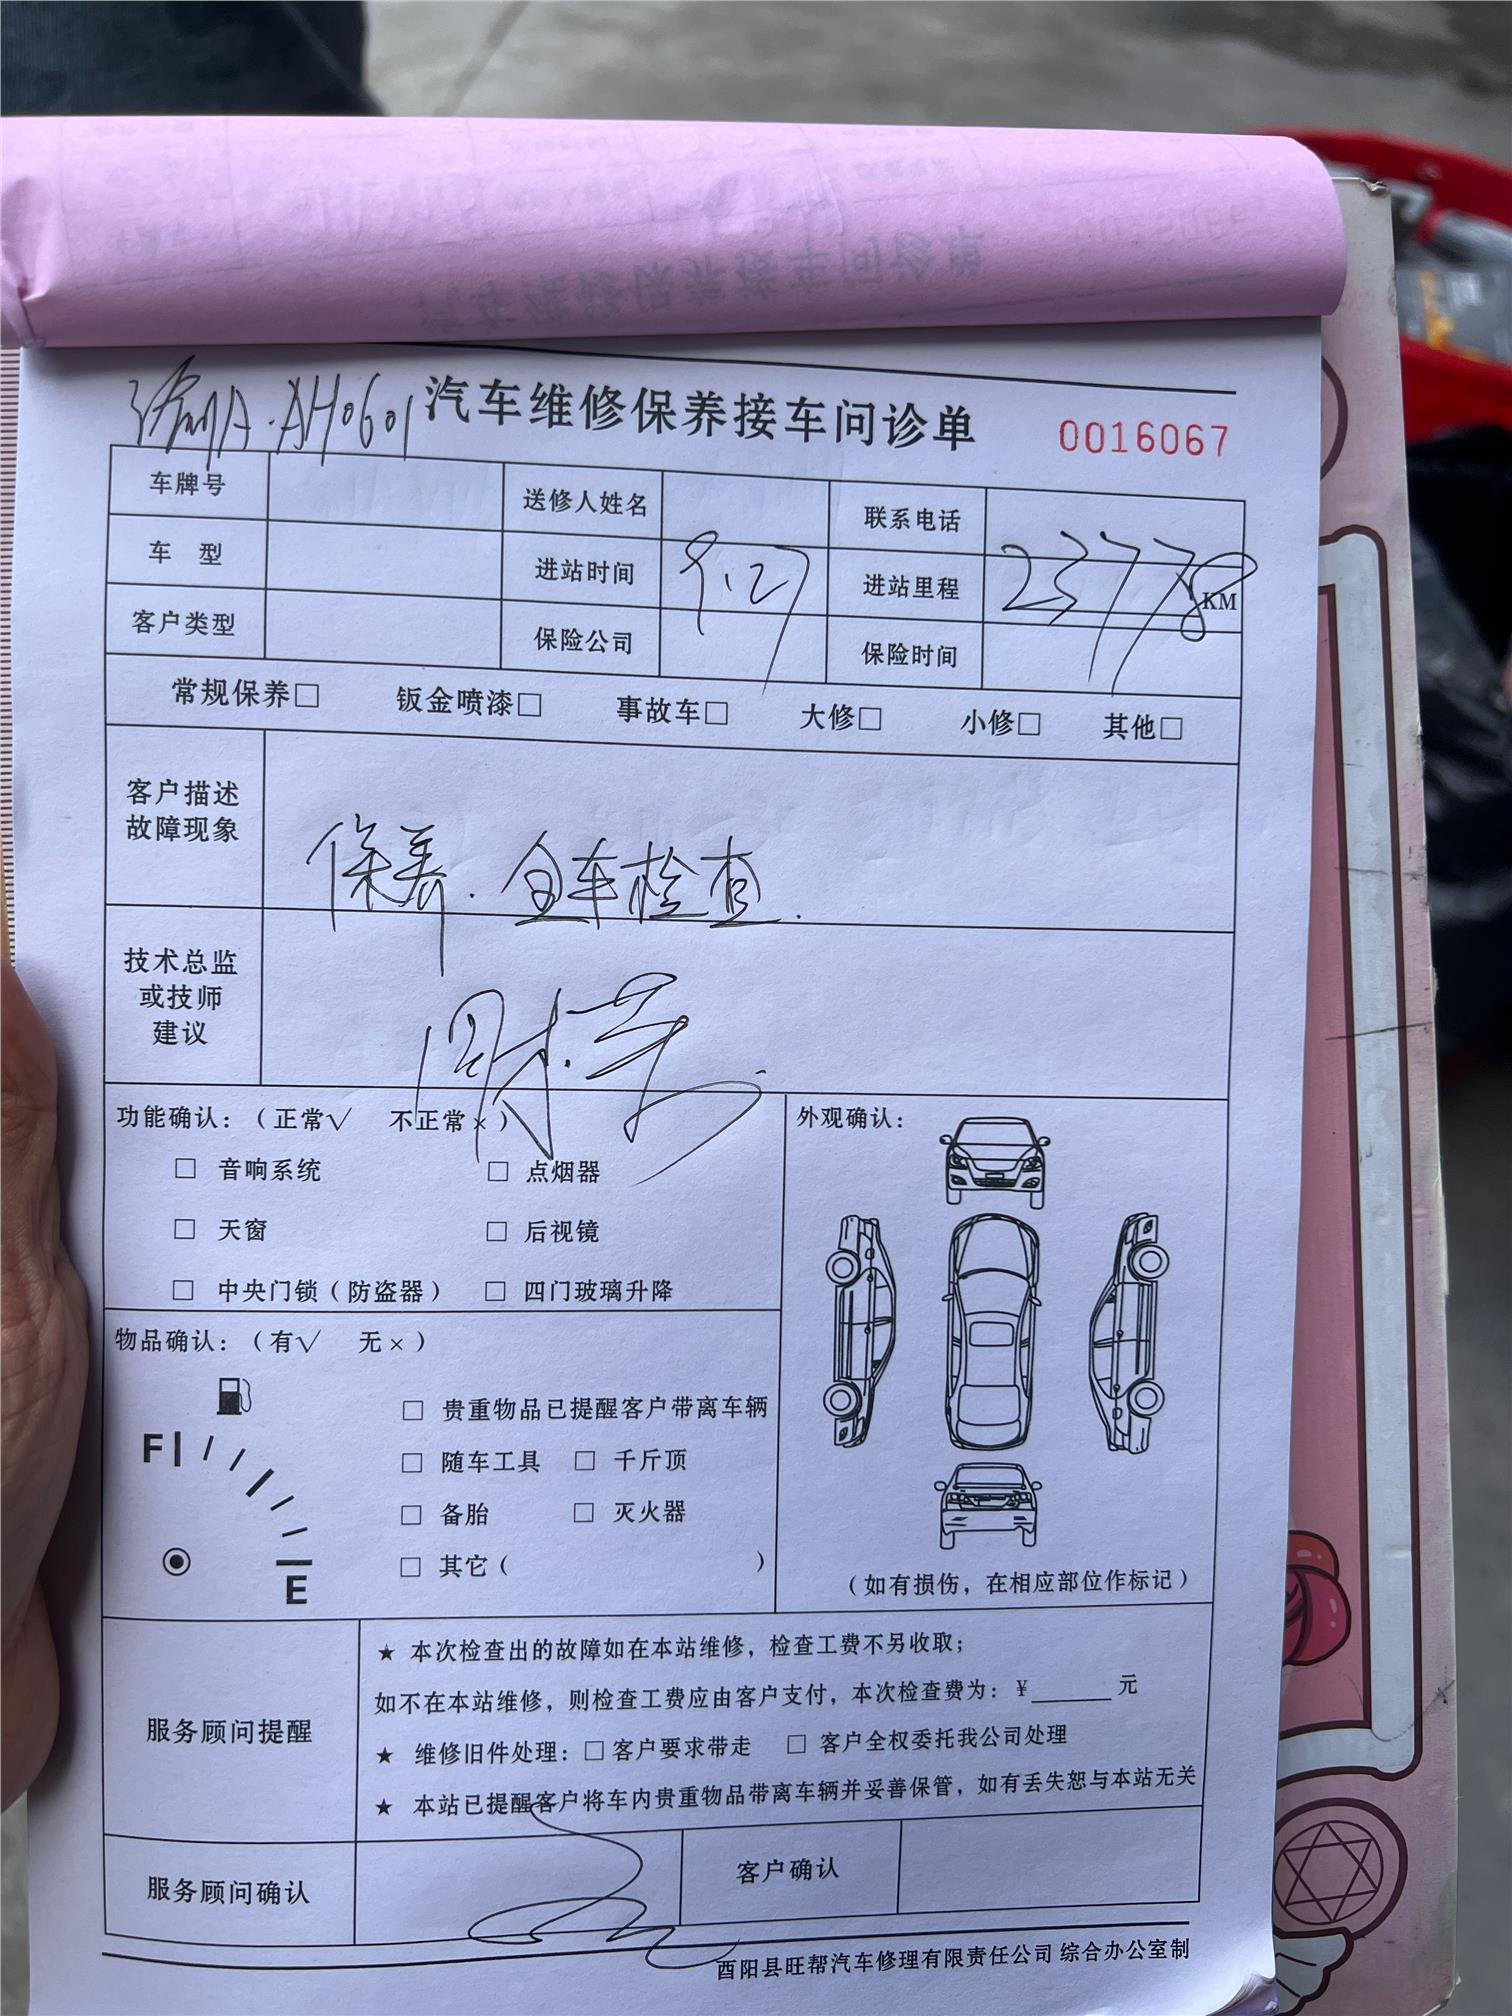 渝A·AH0601 汽车维修保养接车问诊单 0016067
车牌号 送修人姓名 联系电话
车 型 进站时间 9.27 进站里程 23778 KM
客户类型 保险公司 保险时间
常规保养□ 钣金喷漆□ 事故车□ 大修□ 小修□ 其他□
客户描述
故障现象
保养.全车检查.
技术总监
或技师
建议
功能确认：（正常√ 不正常×）
□ 音响系统 □ 点烟器
□ 天窗 □ 后视镜
□ 中央门锁（防盗器） □ 四门玻璃升降
外观确认：
（如有损伤，在相应部位作标记）
物品确认：（有√ 无×）
F
E
□ 贵重物品已提醒客户带离车辆
□ 随车工具 □ 千斤顶
□ 备胎 □ 灭火器
□ 其它（ ）
服务顾问提醒
★ 本次检查出的故障如在本站维修，检查工费不另收取；
如不在本站维修，则检查工费应由客户支付，本次检查费为：¥______元
★ 维修旧件处理：□客户要求带走 □ 客户全权委托我公司处理
★ 本站已提醒客户将车内贵重物品带离车辆并妥善保管，如有丢失恕与本站无关
服务顾问确认 客户确认
酉阳县旺帮汽车修理有限责任公司 综合办公室制